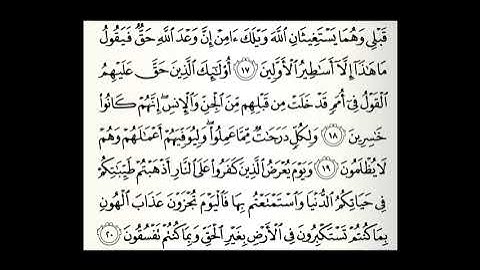 قَبْلِى وَهُمَا يَسْتَغِيثَانِ ٱللَّهَ وَيْلَكَ ءَامِنْ إِنَّ وَعْدَ ٱللَّهِ حَقٌّ فَيَقُولُ
مَا هَٰذَآ إِلَّآ أَسَٰطِيرُ ٱلْأَوَّلِينَ ١٧ أُو۟لَٰٓئِكَ ٱلَّذِينَ حَقَّ عَلَيْهِمُ
ٱلْقَوْلُ فِىٓ أُمَمٍ قَدْ خَلَتْ مِن قَبْلِهِم مِّنَ ٱلْجِنِّ وَٱلْإِنسِ ۖ إِنَّهُمْ كَانُوا۟
خَٰسِرِينَ ١٨ وَلِكُلٍّ دَرَجَٰتٌ مِّمَّا عَمِلُوا۟ ۖ وَلِيُوَفِّيَهُمْ أَعْمَٰلَهُمْ وَهُمْ
لَا يُظْلَمُونَ ١٩ وَيَوْمَ يُعْرَضُ ٱلَّذِينَ كَفَرُوا۟ عَلَى ٱلنَّارِ أَذْهَبْتُمْ طَيِّبَٰتِكُمْ
فِى حَيَاتِكُمُ ٱلدُّنْيَا وَٱسْتَمْتَعْتُم بِهَا فَٱلْيَوْمَ تُجْزَوْنَ عَذَابَ ٱلْهُونِ
بِمَا كُنتُمْ تَسْتَكْبِرُونَ فِى ٱلْأَرْضِ بِغَيْرِ ٱلْحَقِّ وَبِمَا كُنتُمْ تَفْسُقُونَ ٢٠